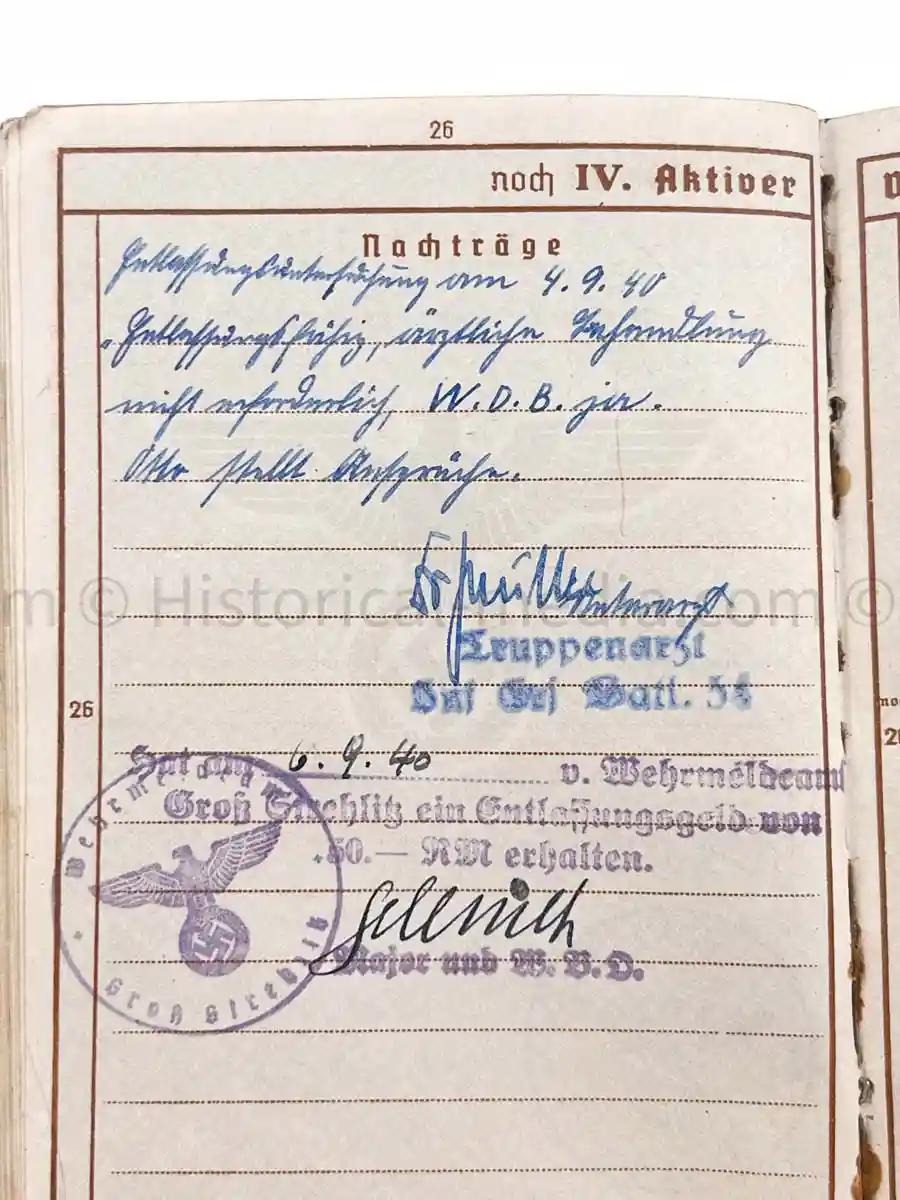 26
noch IV. Aktiver
Nachträge
Entlassungsuntersuchung am 4.9.40
„Entlassungsfähig, ärztliche Behandlung
nicht erforderlich, W.D.B. ja.
stellt Ansprüche.
Unterarzt
Truppenarzt
Inf Ers Batl. 54
26
Hat am 6.9.40 v. Wehrmeldeamt
Groß Strehlitz ein Entlassungsgeld von
50.— RM erhalten.
Major und W.B.O.
Wehrmeldeamt
Groß Strehlitz
© Historical Media.com ©